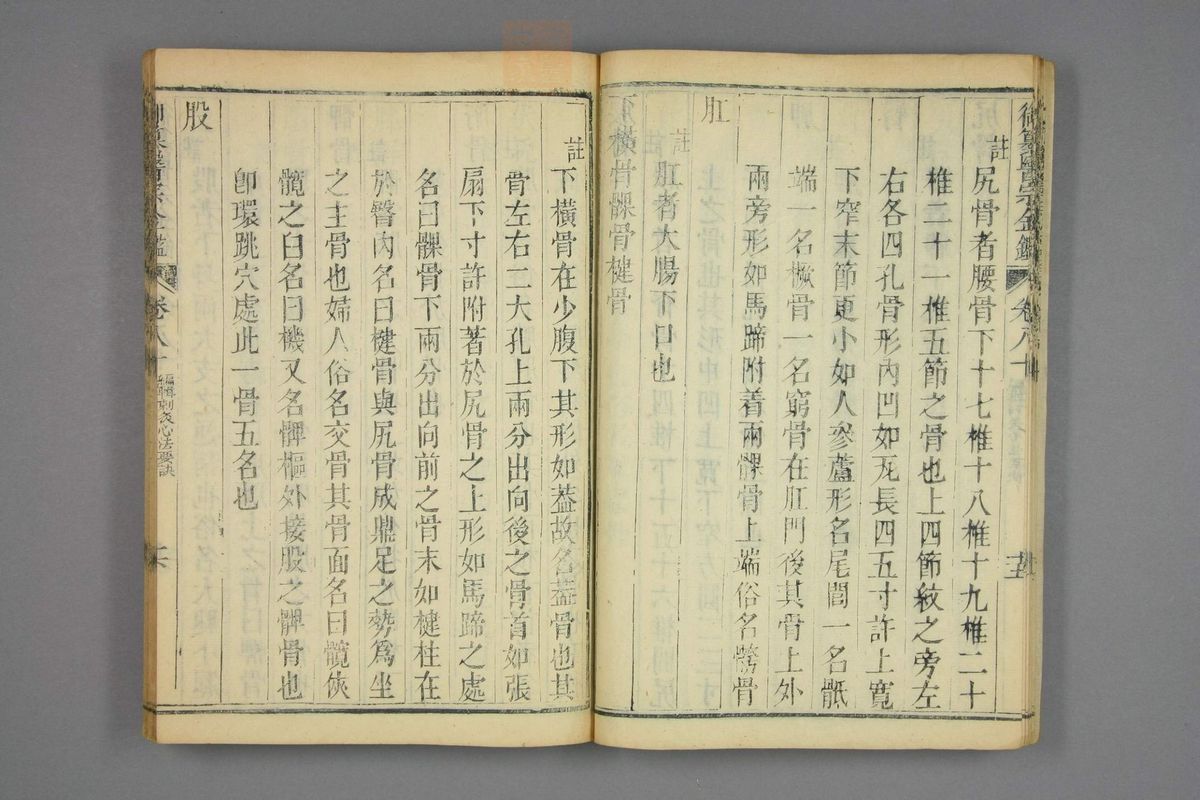 御纂醫宗金鑑 卷八十
註 尻骨者腰骨下十七椎十八椎十九椎二十
椎二十一椎五節之骨也上四節紋之旁左
右各四孔骨形內凹如瓦長四五寸許上寬
下窄末節更小如人參蘆形名尾閭一名骶
端一名橛骨一名窮骨在肛門後其骨上外
兩旁形如馬蹄附着兩髁骨上端俗名骻骨
肛
註 肛者大腸下口也
下橫骨髁骨楗骨
註 下橫骨在少腹下其形如葢故名葢骨也其
骨左右二大孔上兩分出向後之骨首如張
扇下寸許附著於尻骨之上形如馬蹄之處
名曰髁骨下兩分出向前之骨末如楗柱在
於臀內名曰楗骨與尻骨成鼎足之勢爲坐
之主骨也婦人俗名交骨其骨面名曰髖俠
髖之臼名曰機又名髀樞外接股之髀骨也
卽環跳穴處此一骨五名也
股
御纂醫宗金鑑 卷八十 編輯刺灸心法要訣